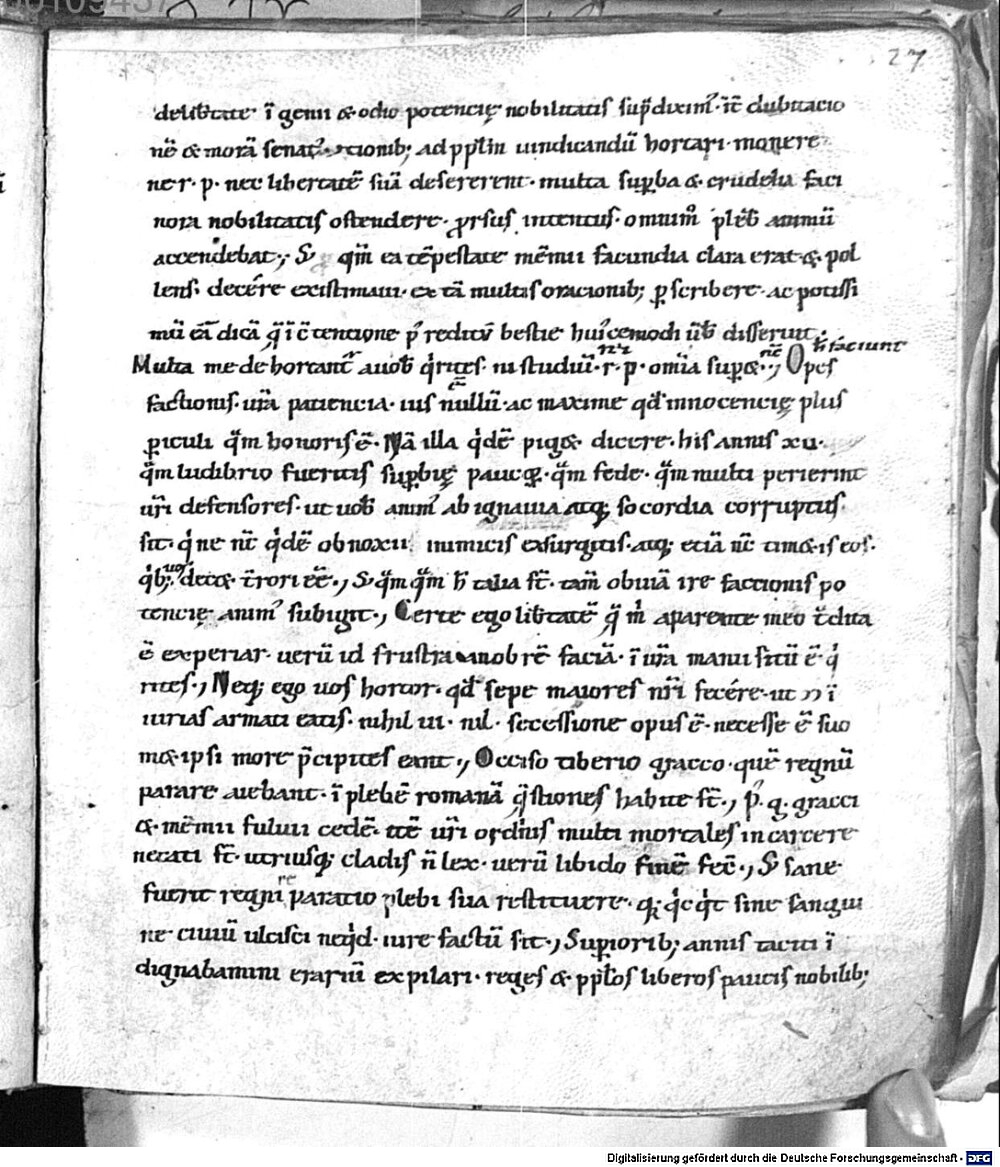 27
delib̄tate ī genii & odio potencię nobilitatis sup̄diximꝰ· īt̄ dubitacio
nē & morā senatꝰ· ꝯcionibꝫ ad ppl̄m uindicandū hortari· monere
ne· r· p· nec libertatē suā desererent· multa sup̱ba & crudelia faci
nora nobilitatis ostendere· ꝓrsus intentus· omnim° pleb̄ animū
accendebat·, S; q̄m ea tēpestate mēmii facundia clara erat· &· pol
lens· decére existimaui· ex tā multis oracionibꝫ ꝑscribere· ac potissi
mū eā dicā q̄ ī c̄tentione p̄ reditū bestie huiꝰcemodi ūb̄ disseruit·
Multa me dehortantꝰ a uob̄ q̇rites· ni studiū· r· p· om̄ia sup̱&·, Opes
n̄ faciunt
factionis· ur̄a paciencia· ius nullū· ac maxime qđ innocencię plus
ꝑiculi q̄m honoris ē· Nā illa q̇dē pig& dicere· his annis xu·
q̄m ludibrio fueritis sup̱bię paucoꝝ· q̄m fede· q̄m multi perierint
ur̄i defensores· ut uob̄ animꝰ ab ignauia atqꝫ socordia corruptus·
sit· q̇ ne nc̄ q̇dē obnoxiis inimicis exsurgitis· atqꝫ etiā nc̄ tim&is eos·
q̇bꝫ uos dec&· t̄rori eē·, S; q̄mq̄m h̄ talia st̄· tam̄ obuiā ire factionis po
tencię animꝰ subigit·, Certe ego lib̄tatē q̄ m̄ aparente meo t̄dita
ē experiar· uerū id frustra anob rē faciā· ī ur̄a manu sitū ē· q̇
rites·, Neqꝫ ego uos hortor· qđ sepe maiores nr̄i fecére· ut ī
iurias armati eatis· nihil ui· nil· secessione opus ē· necesse ē suo
m& ipsi more p̄cipites eant·, Occiso tiberio gracco· quē regnū
parare aiebant· ī plebē romanā q̄stiones habite st̄·, p̄· g· gracci
&· mēmii fuluii cedē· itē ur̄i ordinis multi mortales in carcere
necati st̄· utriusqꝫ cladis n̄ lex· uerū libido finē fec̄·, S; sane
fuerit regni paratio plebi sua restituere· q̇cq̇t sine sangui
ne ciuiū ulcisci neq̇d· iure factū sit·, Superioribꝫ annis taciti ī
dignabamini erariū expilari· reges &· ppl̄os liberos paucis nobilibꝫ
Digitalisierung gefördert durch die Deutsche Forschungsgemeinschaft - DFG